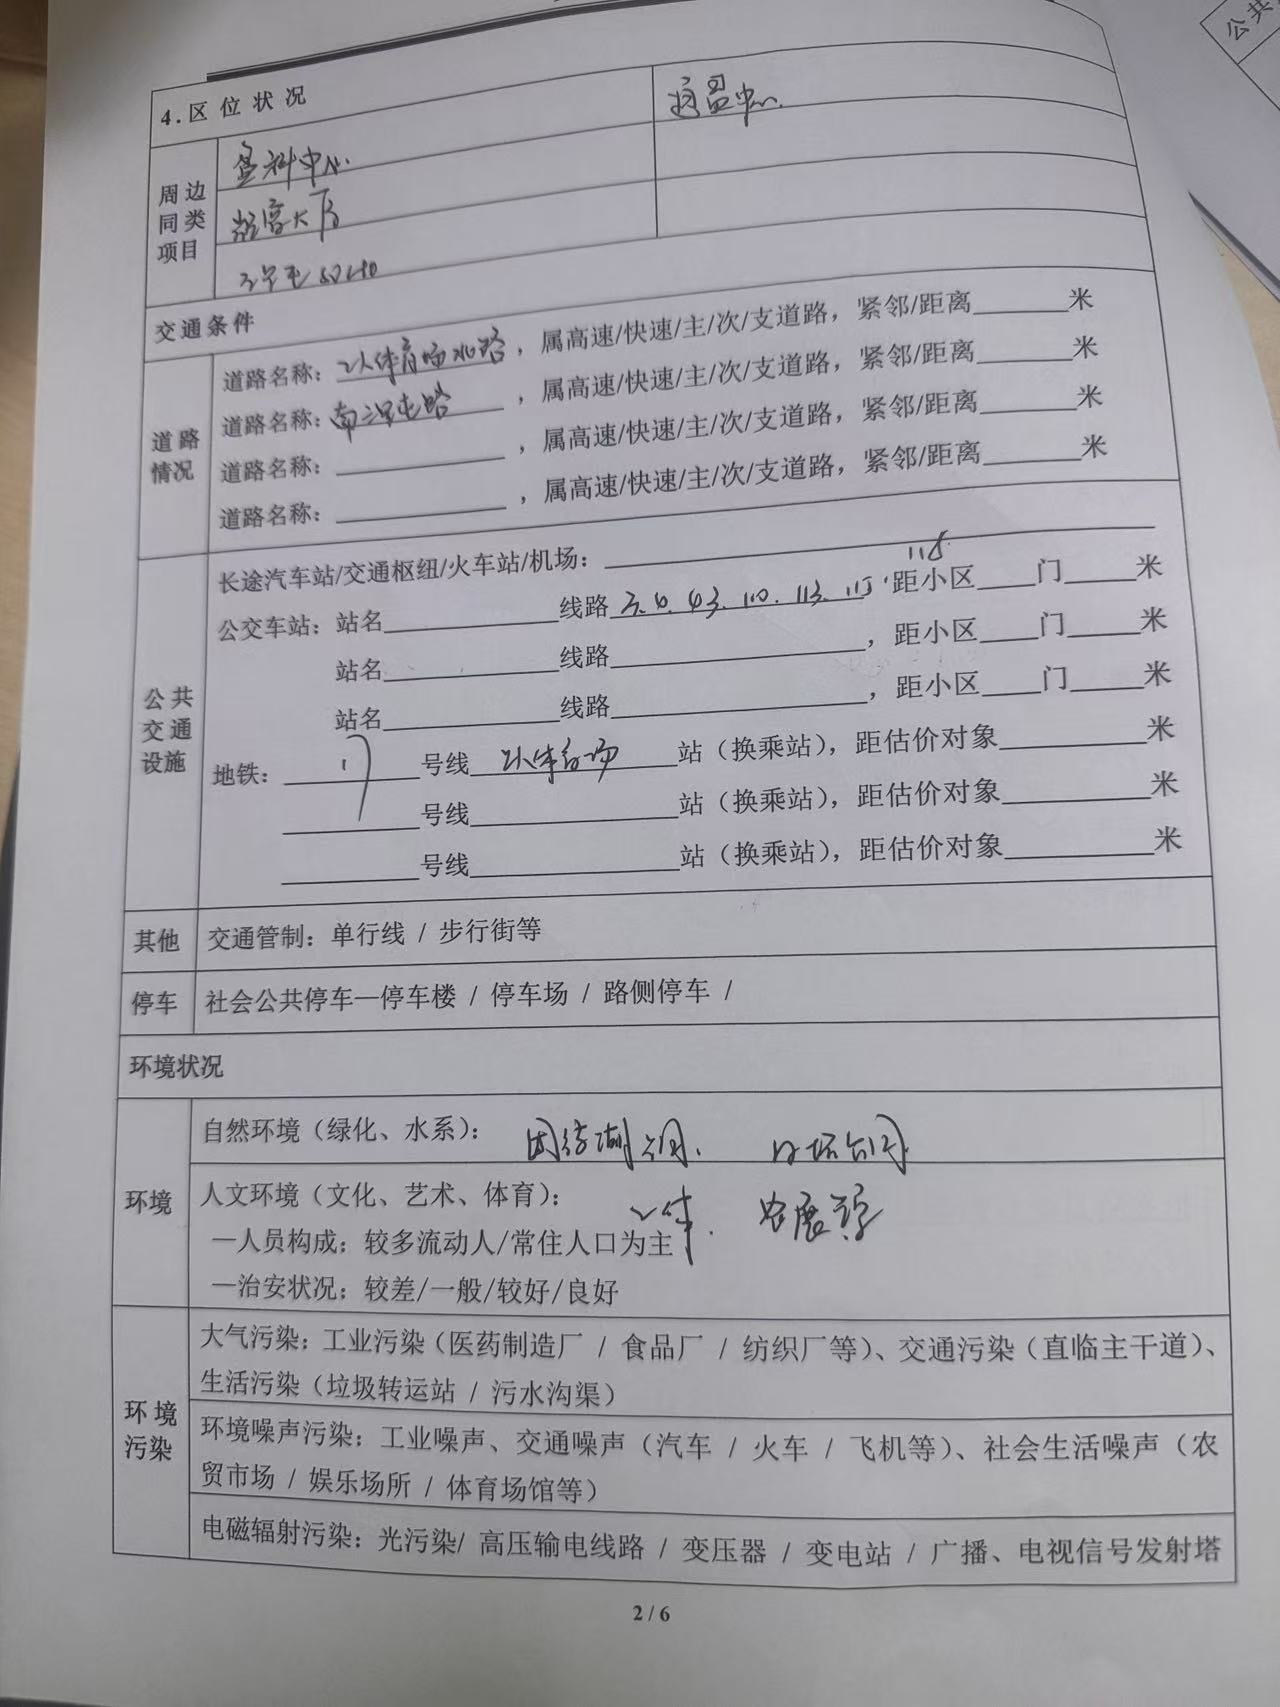 公共
4.区位状况
盈科中心
周边同类项目
大厦
交通条件
道路情况
道路名称：工人体育场北路，属高速/快速/主/次/支道路，紧邻/距离______米
道路名称：南三里屯路，属高速/快速/主/次/支道路，紧邻/距离______米
道路名称：______，属高速/快速/主/次/支道路，紧邻/距离______米
道路名称：______，属高速/快速/主/次/支道路，紧邻/距离______米
公共交通设施
长途汽车站/交通枢纽/火车站/机场：______
118
公交车站：站名______线路3.4.43.110.113.115.距小区____门____米
站名______线路______，距小区____门____米
站名______线路______，距小区____门____米
地铁：17号线 工人体育场 站（换乘站），距估价对象______米
______号线______站（换乘站），距估价对象______米
______号线______站（换乘站），距估价对象______米
其他 交通管制：单行线 / 步行街等
停车 社会公共停车—停车楼 / 停车场 / 路侧停车 /
环境状况
环境
自然环境（绿化、水系）：团结湖公园. 日坛公园.
人文环境（文化、艺术、体育）：工体. 农展馆
—人员构成：较多流动人/常住人口为主
—治安状况：较差/一般/较好/良好
环境污染
大气污染：工业污染（医药制造厂 / 食品厂 / 纺织厂等）、交通污染（直临主干道）、
生活污染（垃圾转运站 / 污水沟渠）
环境噪声污染：工业噪声、交通噪声（汽车 / 火车 / 飞机等）、社会生活噪声（农
贸市场 / 娱乐场所 / 体育场馆等）
电磁辐射污染：光污染/ 高压输电线路 / 变压器 / 变电站 / 广播、电视信号发射塔
2 / 6